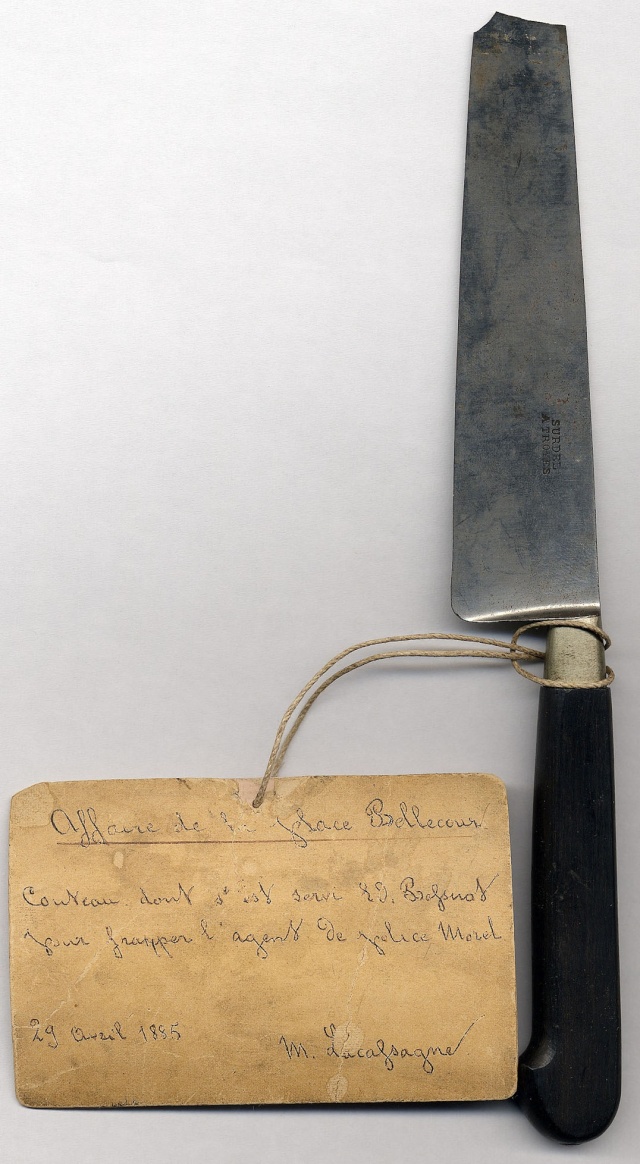 SURDEL
A TROYES
Affaire de la place Bellecour
Couteau dont s'est servi Ed. Besnat
pour frapper l'agent de police Morel
29 Avril 1885
M. Lacassagne